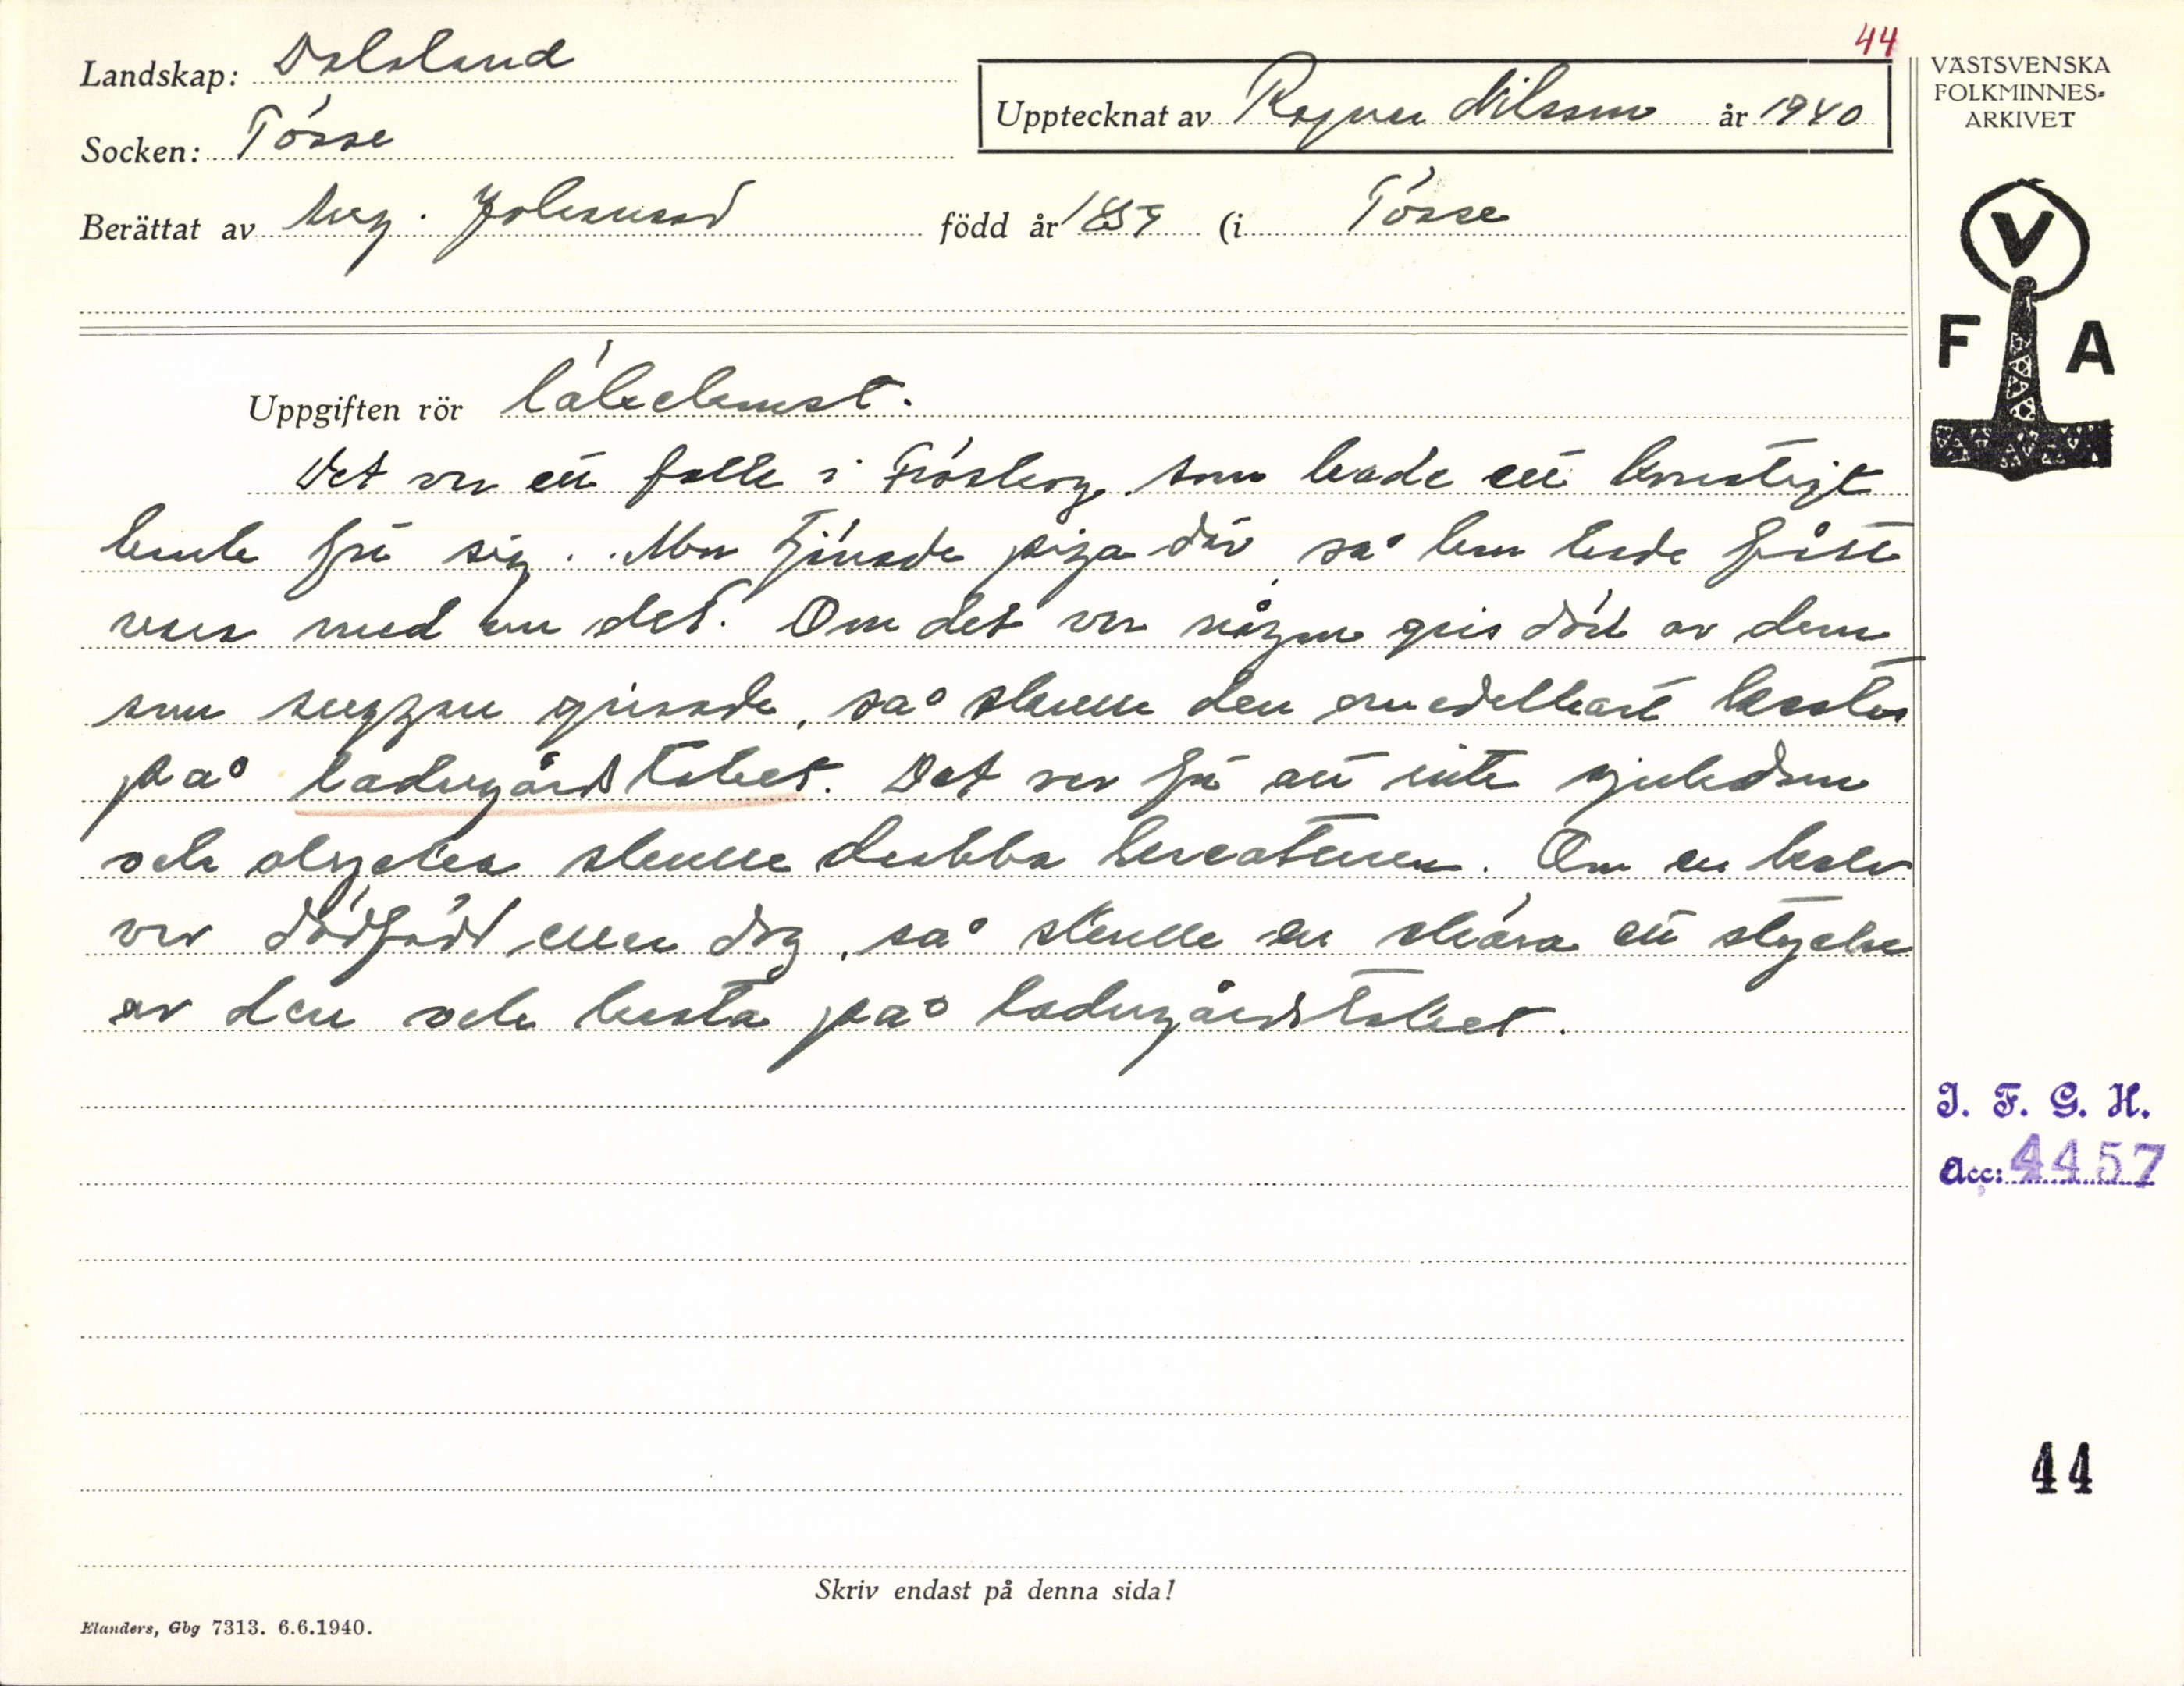 44
Landskap: Dalsland
Upptecknat av Ragnar Nilsson år 1940
VÄSTSVENSKA
FOLKMINNES-
ARKIVET
Socken: Tösse
Berättat av Aug. Johansson född år 1859 (i Tösse
V
F A
Uppgiften rör läkekonst.
Det var ett folk i Fröskog som hade ett konstigt
bruk för sig. Mor tjänade piga där så hon hade fått
vara med om det. Om det var någon gris död av dem
som suggan grisade, så skulle den omedelbart kastas
på ladugårdstaket. Det var för att inte sjukdom
och olycka skulle drabba kreaturen. Om en kalv
var dödfödd eller dog, så skulle en skära ett stycke
av den och kasta på ladugårdstaket.
I. F. G. H.
Acc: 4457
44
Skriv endast på denna sida!
Elanders, Gbg 7313. 6.6.1940.